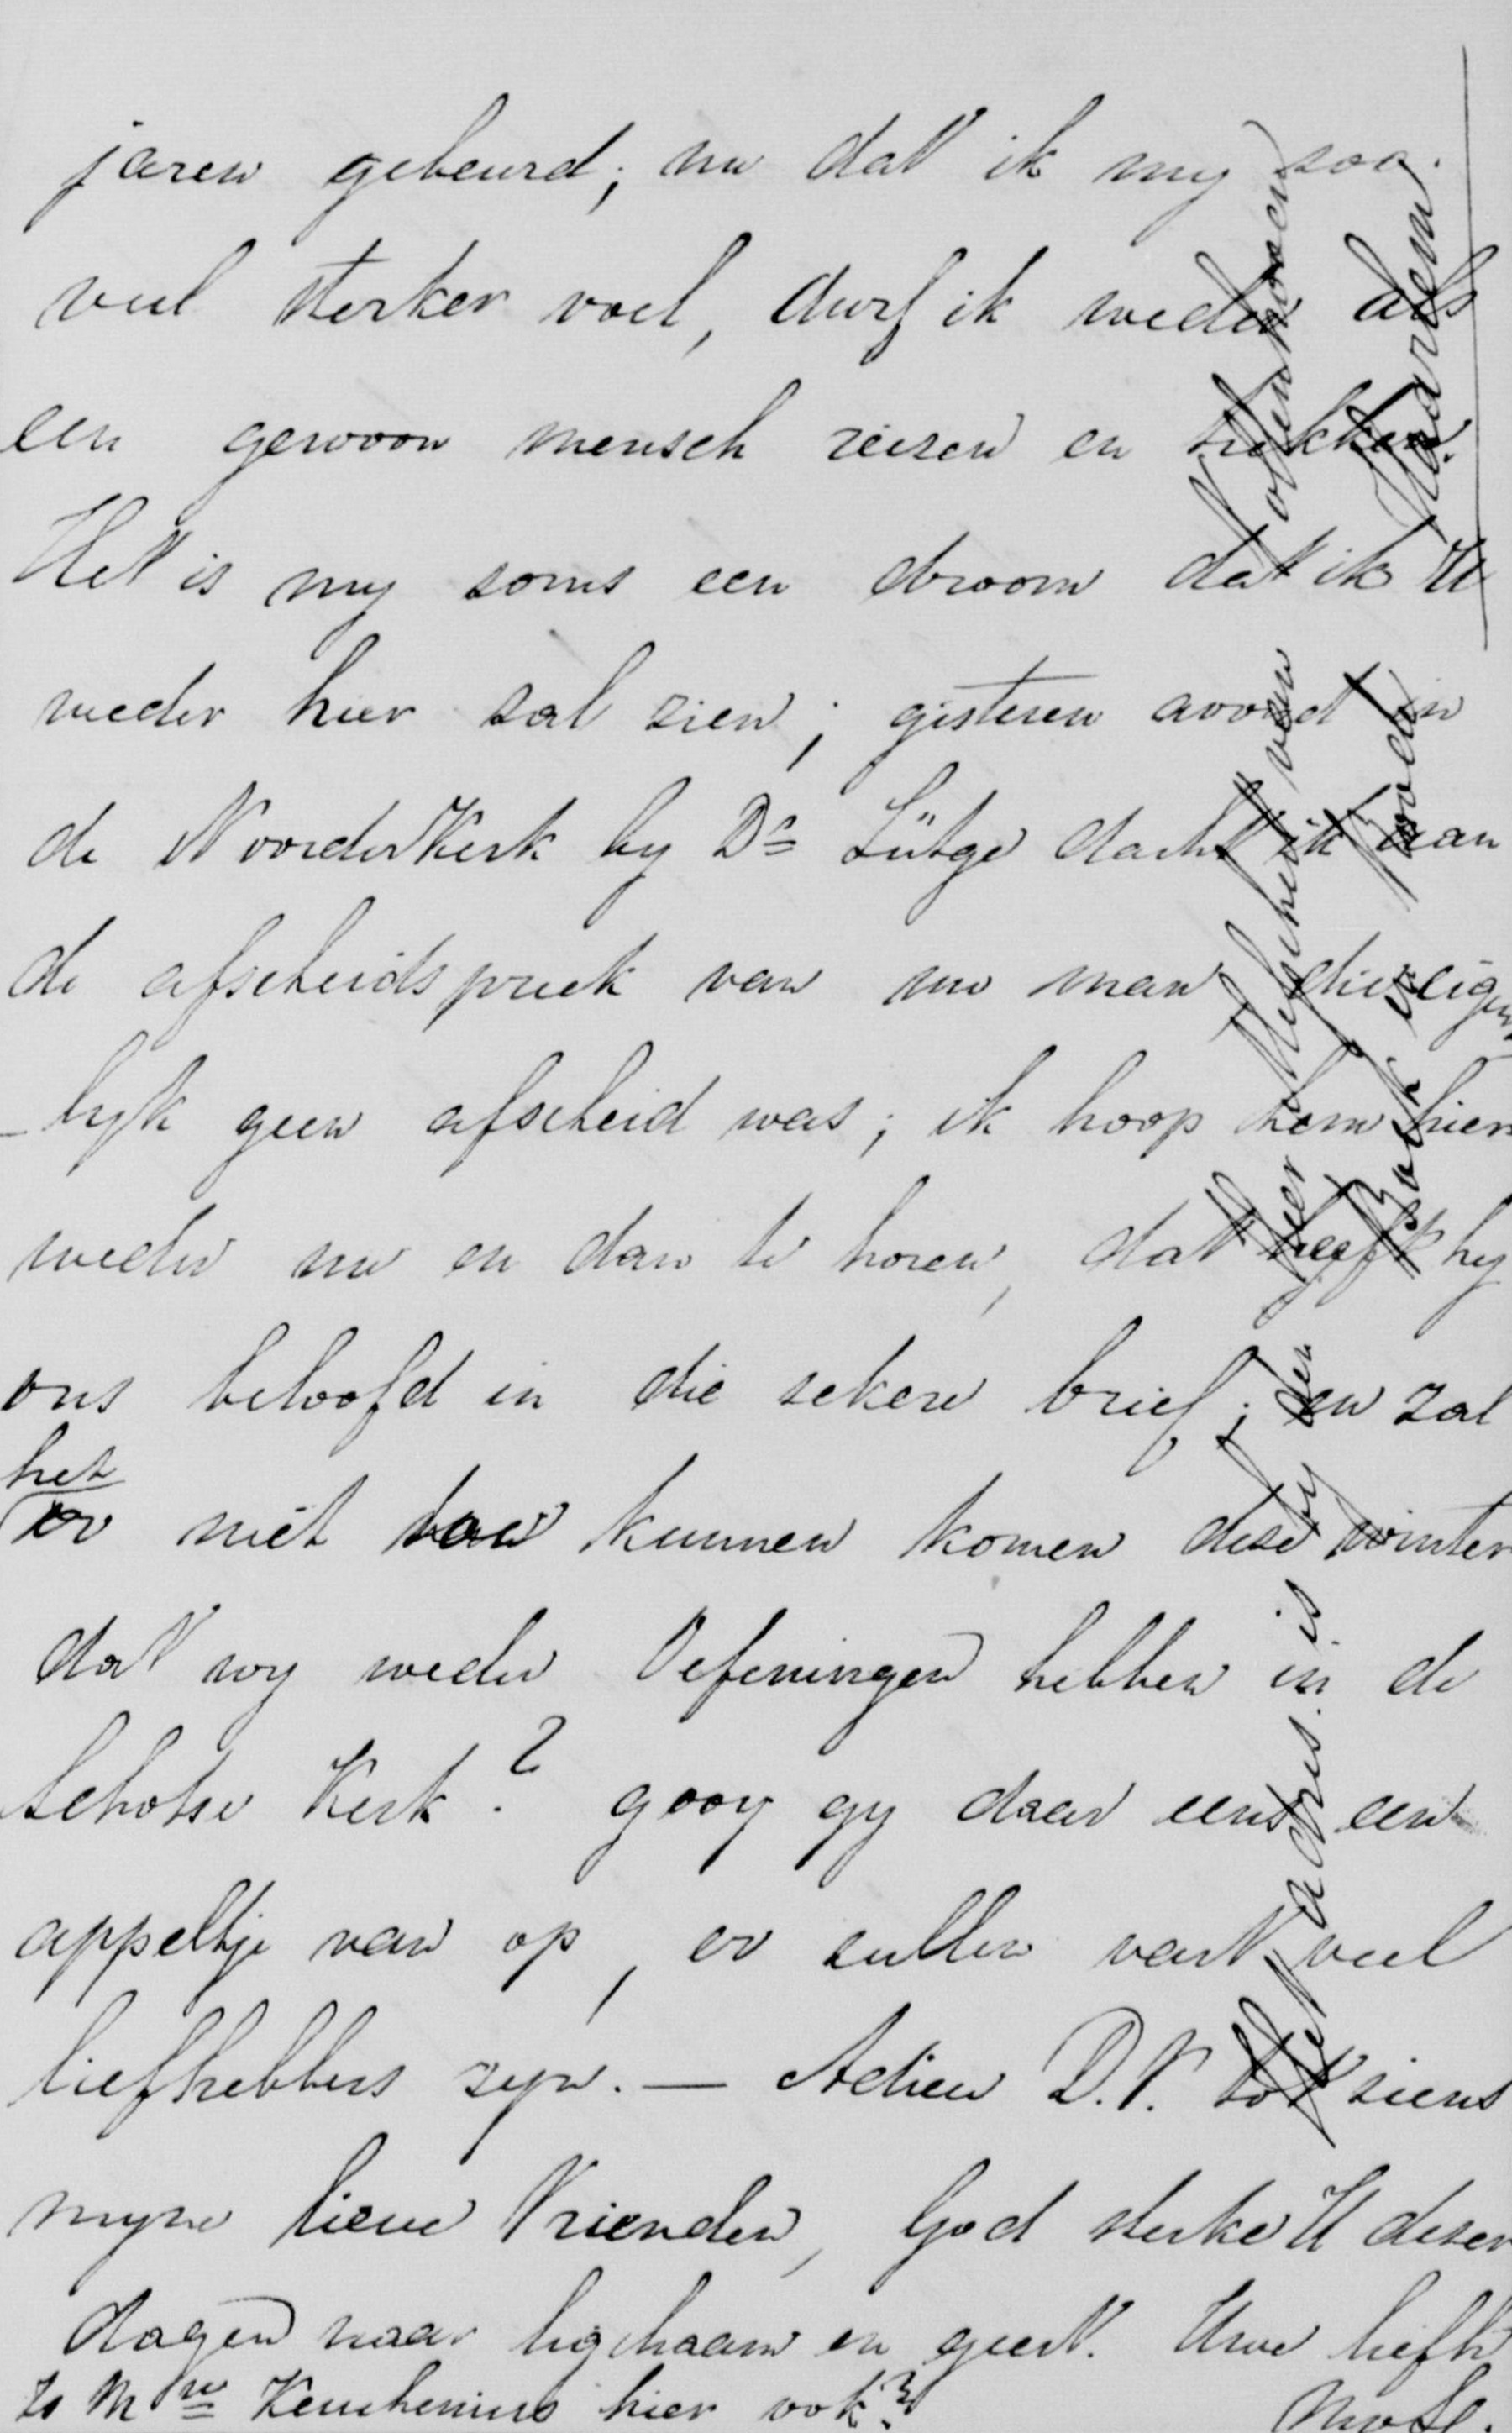 jaren gebeurd; nu dat ik my zoo
veel sterker voel, durf ik weder als
een gewoon mensch reizen en trekken.
Het is my soms een droom dat ik U
weder hier zal zien; gisteren avond in
de Noorderkerk by Ds Lütge dacht ik aan
de afscheidspreek van uw man die eigen
-lyk geen afscheid was; ik hoop hem hier
weder nu en dan te horen, dat heeft hy
ons beloofd in die zekere brief; en zal
het
er niet toe kunnen komen deze winter
dat wy weder Oefeningen hebben in de
Schotse Kerk? gooy gy daar eens een
appeltje van op, er zullen vast veel
liefhebbers zyn. — Adieu D.V. tot ziens
myne lieve Vrienden, God sterke U dezer
dagen naar lighaam en geest. Uwe liefh
Is Mw Keuchenius hier ook?
adres is
by den Heer van
Haarlem